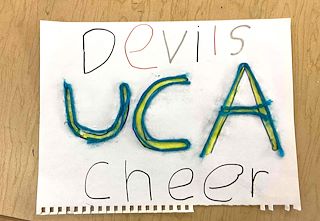 Devils
UCA
cheer